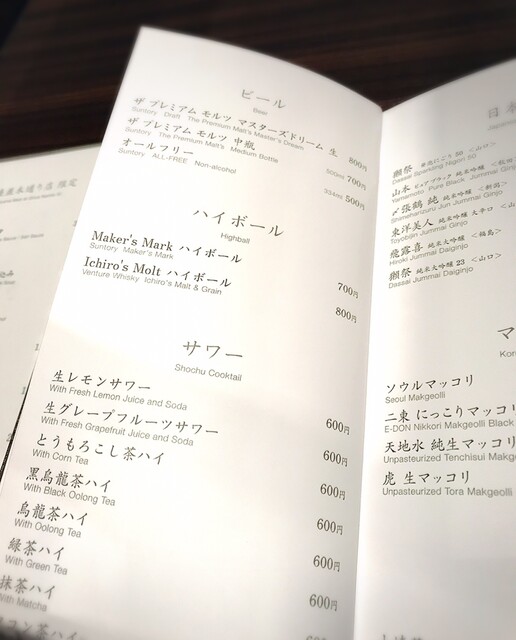 ビール
Beer
ザ プレミアム モルツ マスターズドリーム 生 800円
Suntory Draft The Premium Malt's Master's Dream
ザ プレミアム モルツ 中瓶 500ml 700円
Suntory The Premium Malt's Medium Bottle
オールフリー 334ml 500円
Suntory ALL-FREE Non-alcohol
ハイボール
Highball
Maker's Mark ハイボール 700円
Suntory Maker's Mark
Ichiro's Molt ハイボール 800円
Venture Whisky Ichiro's Malt & Grain
サワー
Shochu Cooktail
生レモンサワー 600円
With Fresh Lemon Juice and Soda
生グレープフルーツサワー 600円
With Fresh Grapefruit Juice and Soda
とうもろこし茶ハイ 600円
With Corn Tea
黒烏龍茶ハイ 600円
With Black Oolong Tea
烏龍茶ハイ 600円
With Oolong Tea
緑茶ハイ 600円
With Green Tea
抹茶ハイ
With Matcha
日本
獺祭 発泡にごり 50 <山口>
Dassai Sparking Nigori 50
山本 ピュアブラック 純米吟醸
Yamamoto Pure Black Jummai Ginjo
〆張鶴 純 純米吟醸 <新潟>
Shimeharizuru Jun Jummai Ginjo
東洋美人 純米吟醸 大辛口
Toyobijin Jummai Ginjo
飛露喜 純米大吟醸 <福島>
Hiroki Jummai Daiginjo
獺祭 純米大吟醸 23 <山口>
Dassai Jummai Daiginjo
マ
ソウルマッコリ
Seoul Makgeolli
二東 にっこりマッコリ
E-DON Nikkori Makgeolli Black
天地水 純生マッコリ
Unpasteurized Tenchisui Makge
虎 生マッコリ
Unpasteurized Tora Makgeolli